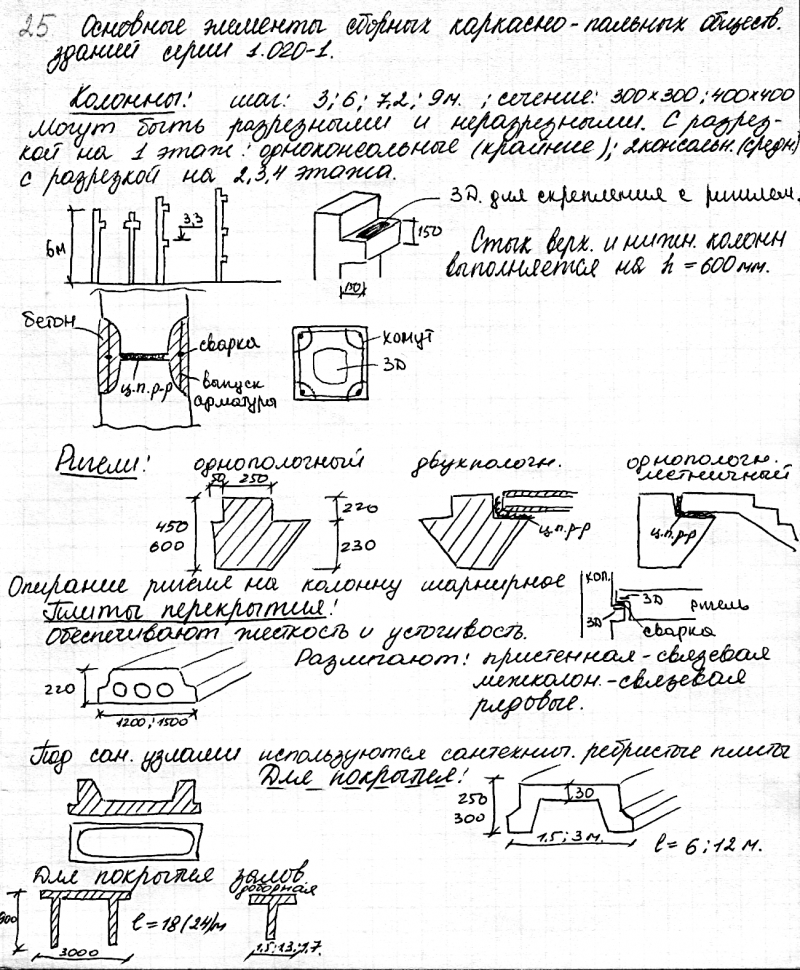 25 Основные элементы сборных каркасно-пальных обществ.
зданий серии 1.020-1.
Колонны: шаг: 3; 6; 7,2; 9м. ; сечение: 300×300; 400×400
Могут быть разрезными и неразрезными. С разрез-
кой на 1 этаж: одноконсольные (крайние); 2консольн. (средн)
с разрезкой на 2,3,4 этажа.
6м
3.3
ЗД. для скрепления с ригелем.
150
150
Стык верх. и нижн. колонн
выполняется на h = 600 мм.
бетон
сварка
ц.п.р-р
выпуск
арматуры
хомут
ЗД
Ригели: однополочный двухполочн. однополочн.
лестничный
50 250
450
600
220
230
ц.п.р-р
ц.п.р-р
Опирание ригеля на колонну шарнирное
кол.
ЗД
ригель
ЗД
сварка
Плиты перекрытия:
Обеспечивают жесткость и устойчивость.
Различают: пристенная-связевая
межколон.-связевая
рядовые.
220
1200; 1500
Под сан. узлами используются сантехнич. ребристые плиты
Для покрытия:
250
300
30
1.5; 3м.
l = 6; 12 м.
Для покрытия залов.
доборная
l = 18(24)м
3000